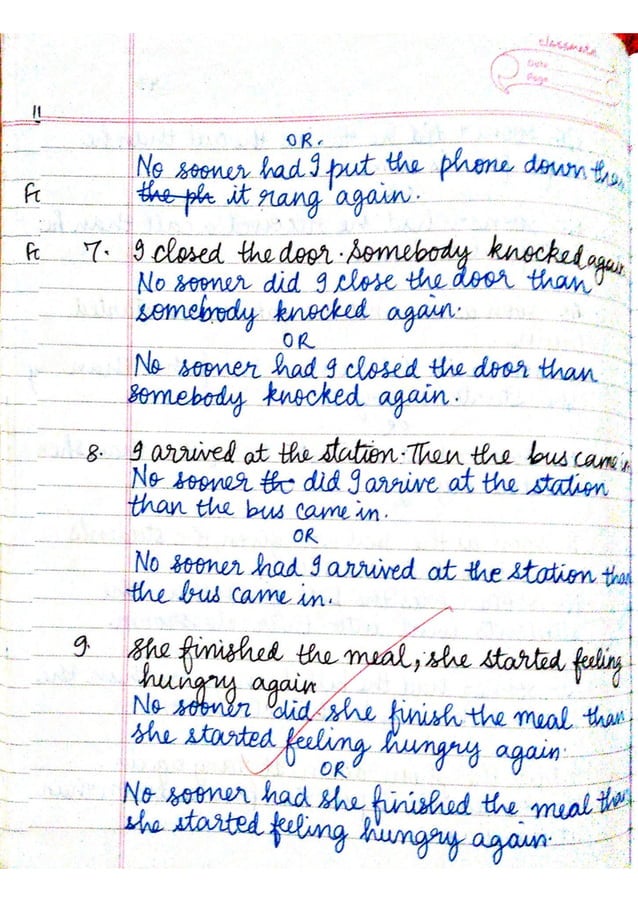 classmate
Date
Page
11
OR.
No sooner had I put the phone down than
the ph it rang again.
Fc
Fc 7. I closed the door. Somebody knocked again
No sooner did I close the door than
somebody knocked again.
OR
No sooner had I closed the door than
somebody knocked again.
8. I arrived at the station. Then the bus came in
No sooner th did I arrive at the station
than the bus came in.
OR
No sooner had I arrived at the station than
the bus came in.
9. She finished the meal, she started feeling
hungry again
No sooner did she finish the meal than
she started feeling hungry again.
OR
No sooner had she finished the meal than
she started feeling hungry again.